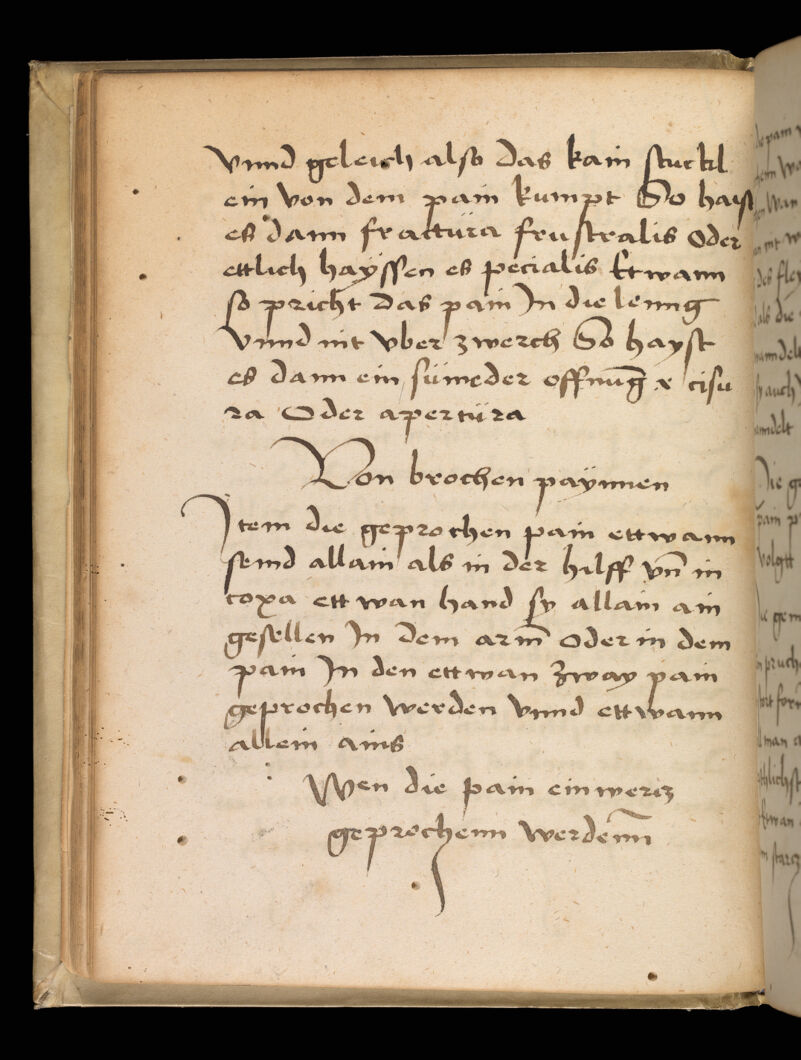 vnnd geleich also das kain stuckl
ein von dem pain kumpt So haist
es dann fractüra frustralis Oder
ettlich hayssen es pecialis Etwann
so pricht das pain In die lenng
vnnd nit vber zwerch So hayst
es dann ein offnung cisu
ra Oder apertüra
Von brochen paynnen
Item die geprochen pain ettwann
send allain als in der hilff vn̄ in
coxa ettwan hand sy allain ain
gesellen In dem arm̄ oder in dem
pain In den ettwan zway pain
geprochen werden vnnd ettwann
allein ains
Wen die pain einwercz
geprochenn werdenn̄